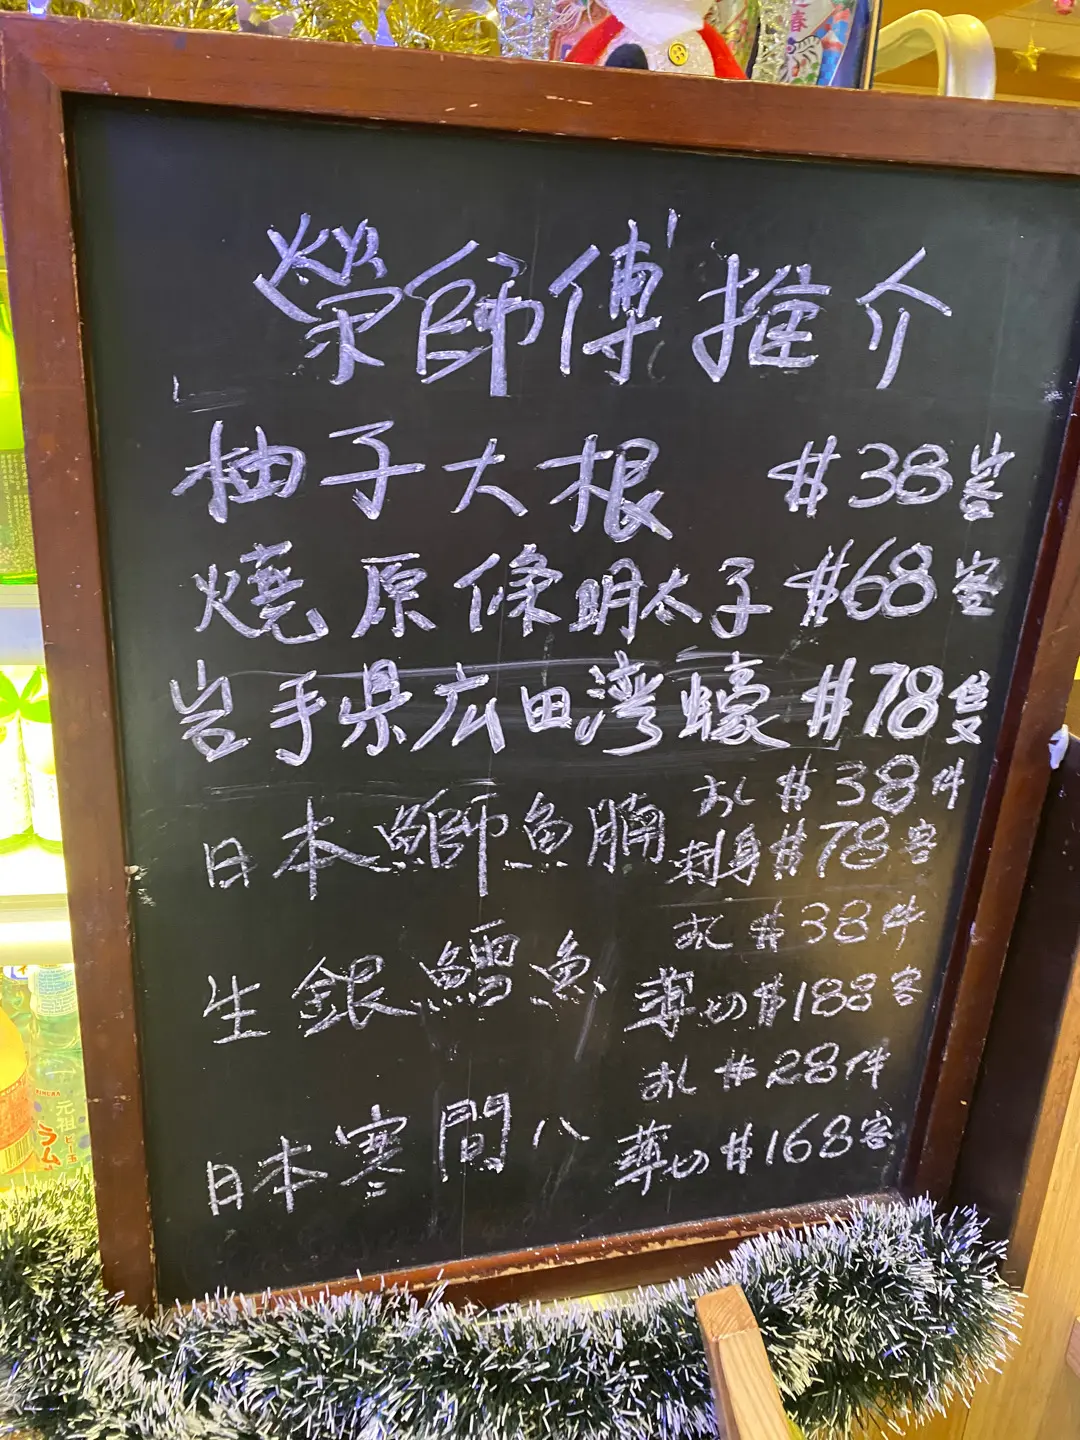 迎春
榮師傅推介
柚子大根 $38客
燒原條明太子 $68客
岩手県広田湾蠔 $78隻
日本鰤魚腩 すし $38件
刺身 $78客
生銀鱈魚 すし $38件
薄切 $188客
日本寒間八 すし $28件
薄切 $168客
元祖
ラム